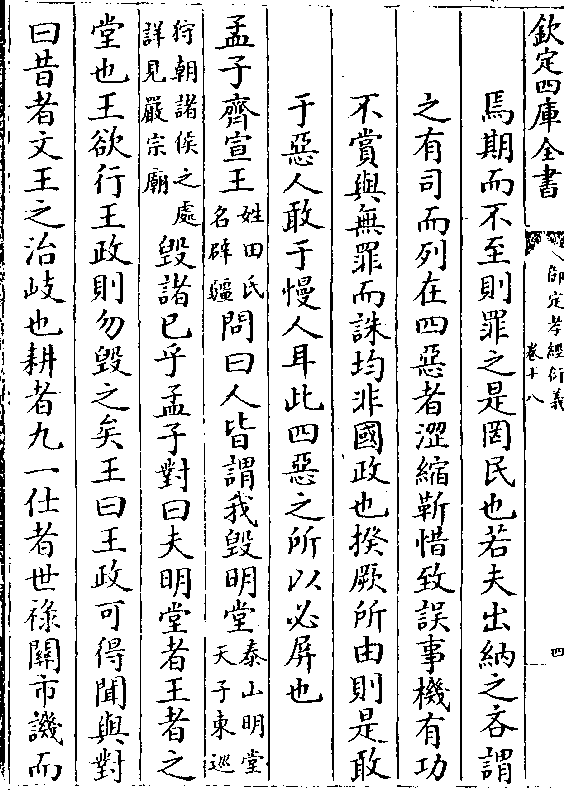 欽定四庫全書
御定孝經衍義
卷十八
四
焉期而不至則罪之是罔民也若夫出納之吝謂
之有司而列在四惡者澀縮靳惜致誤事機有功
不賞與無罪而誅均非國政也揆厥所由則是敢
于惡人敢于慢人耳此四惡之所以必屏也
孟子齊宣王姓田氏名辟疆問曰人皆謂我毀明堂泰山明堂天子東巡
狩朝諸侯之處詳見嚴宗廟毀諸已乎孟子對曰夫明堂者王者之
堂也王欲行王政則勿毀之矣王曰王政可得聞與對
曰昔者文王之治岐也耕者九一仕者世祿關市譏而